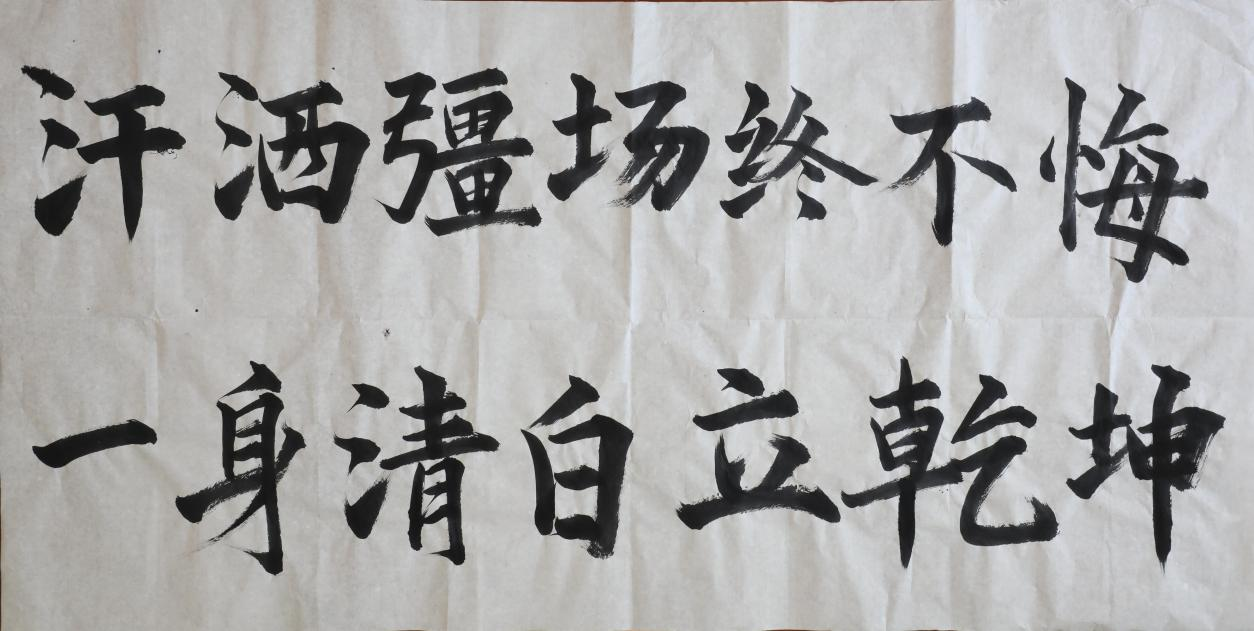 汗洒疆场终不悔
一身清白立乾坤